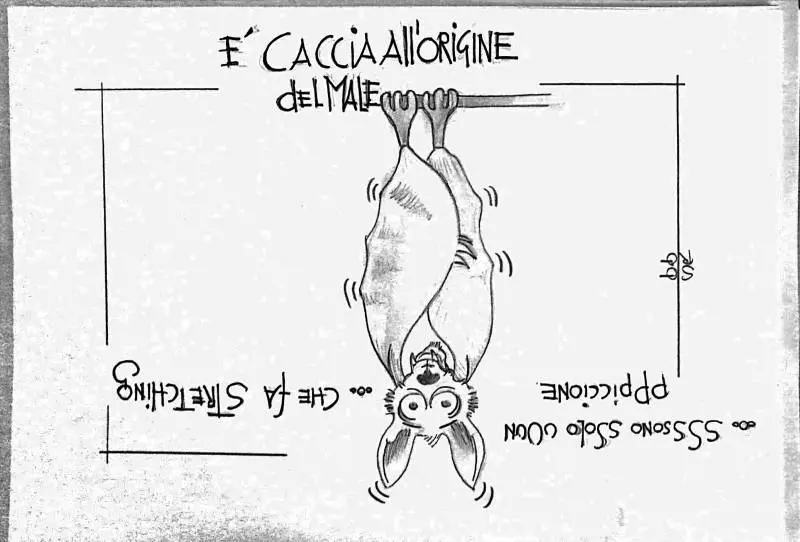 E' CACCIA All'ORIGINE
dEL MALE
... SSSsono sSolo uUUN
PPPiccIONE
... CHE fA STRETCHiNG